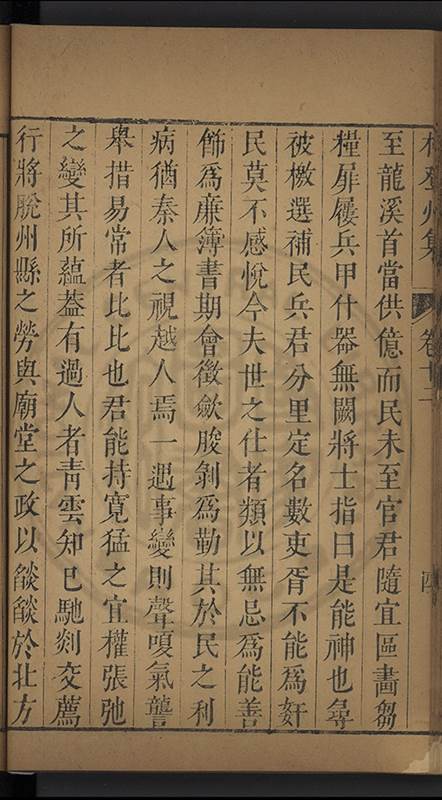 林登州集 卷十二 四
至龍溪首當供億而民未至官君隨宜區畫芻
糧屝屨兵甲什器無闕將士指曰是能神也尋
被檄選補民兵君分里定名數吏胥不能為奸
民莫不感悅今夫世之仕者類以無忌為能善
飾為廉簿書期會徵歛朘剝為勤其於民之利
病猶秦人之視越人焉一遇事變則聲嗄氣讋
舉措易常者比比也君能持寬猛之宜權張弛
之變其所蘊葢有過人者靑雲知巳馳剡交薦
行將脫州縣之勞與廟堂之政以燄燄於壯方